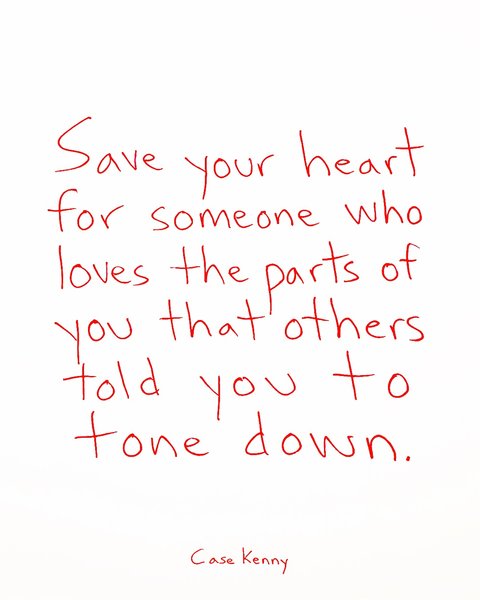 Save your heart
for someone who
loves the parts of
you that others
told you to
tone down.
Case Kenny